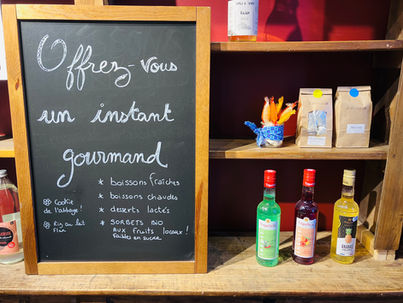 Offrez-vous
un instant
gourmand
* boissons fraîches
* boissons chaudes
* desserts lactés
* SORBETS BIO
AUX fruits locaux !
faibles en sucre
Cookie
de l'abbaye !
Riz au lait